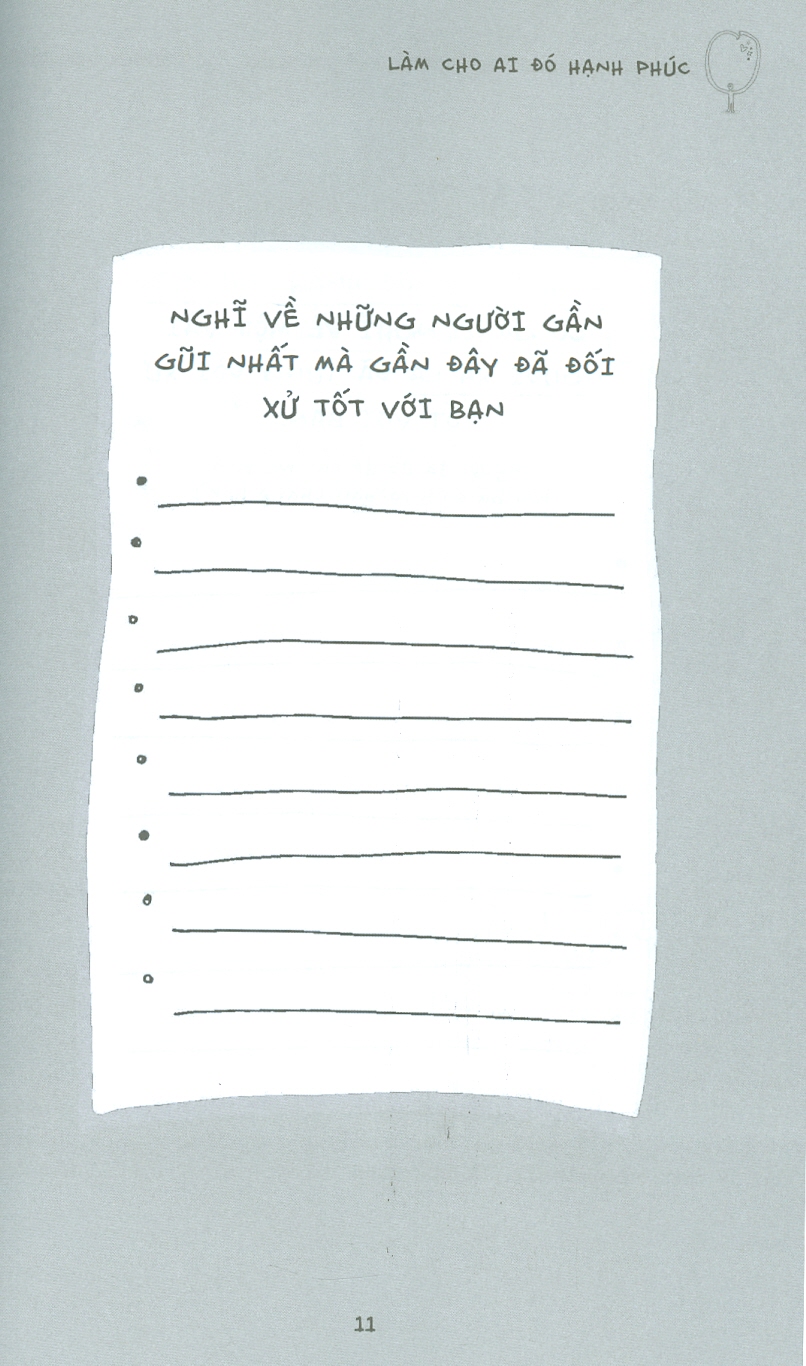 LÀM CHO AI ĐÓ HẠNH PHÚC
NGHĨ VỀ NHỮNG NGƯỜI GẦN
GŨI NHẤT MÀ GẦN ĐÂY ĐÃ ĐỐI
XỬ TỐT VỚI BẠN
11